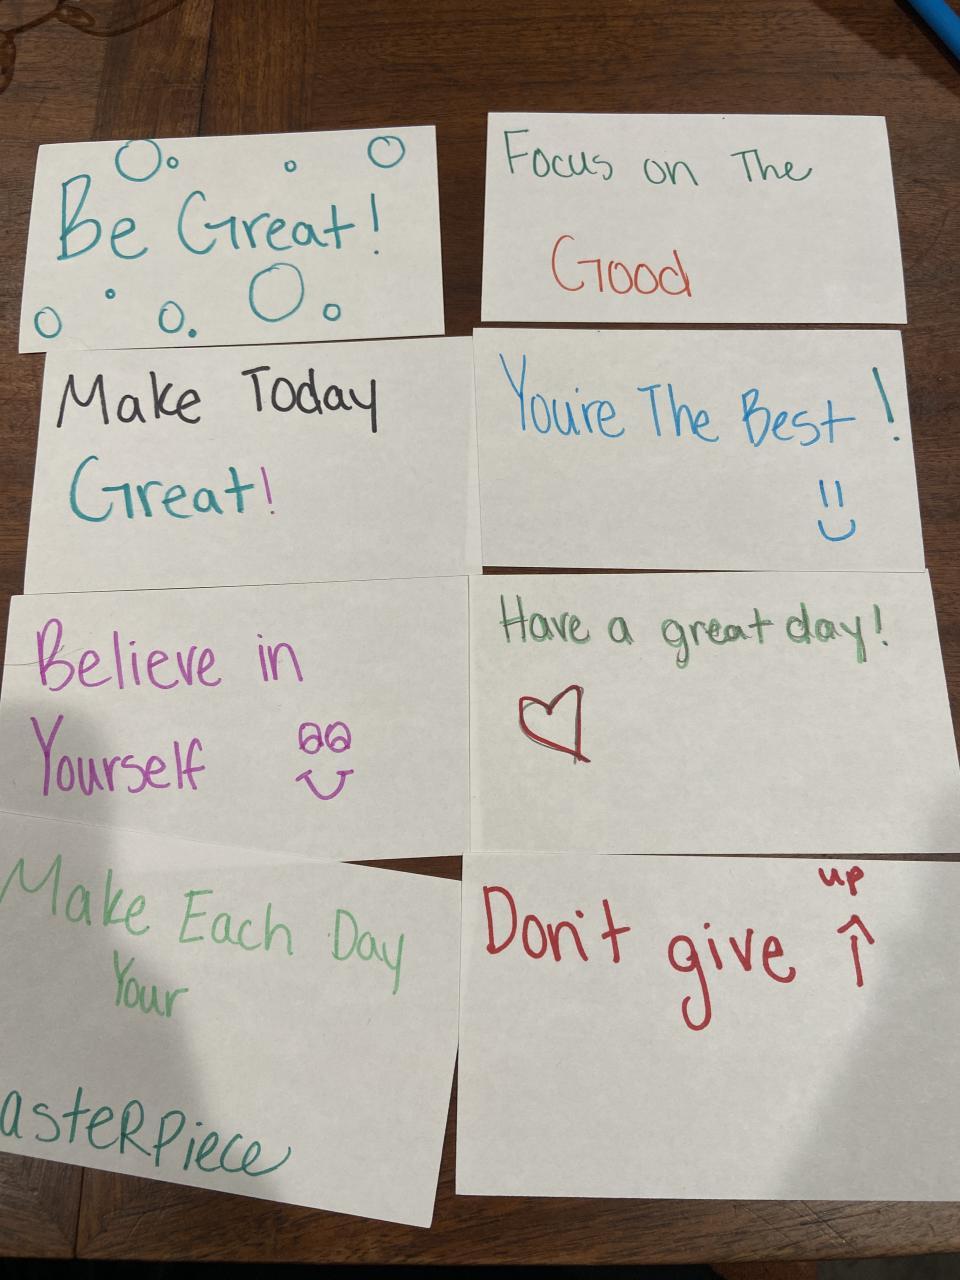 Be Great!
Focus on The
Good
Make Today
Great!
You're The Best!
Believe in
Yourself
Have a great day!
Make Each Day
Your
asterpiece
Don't give ↑
up